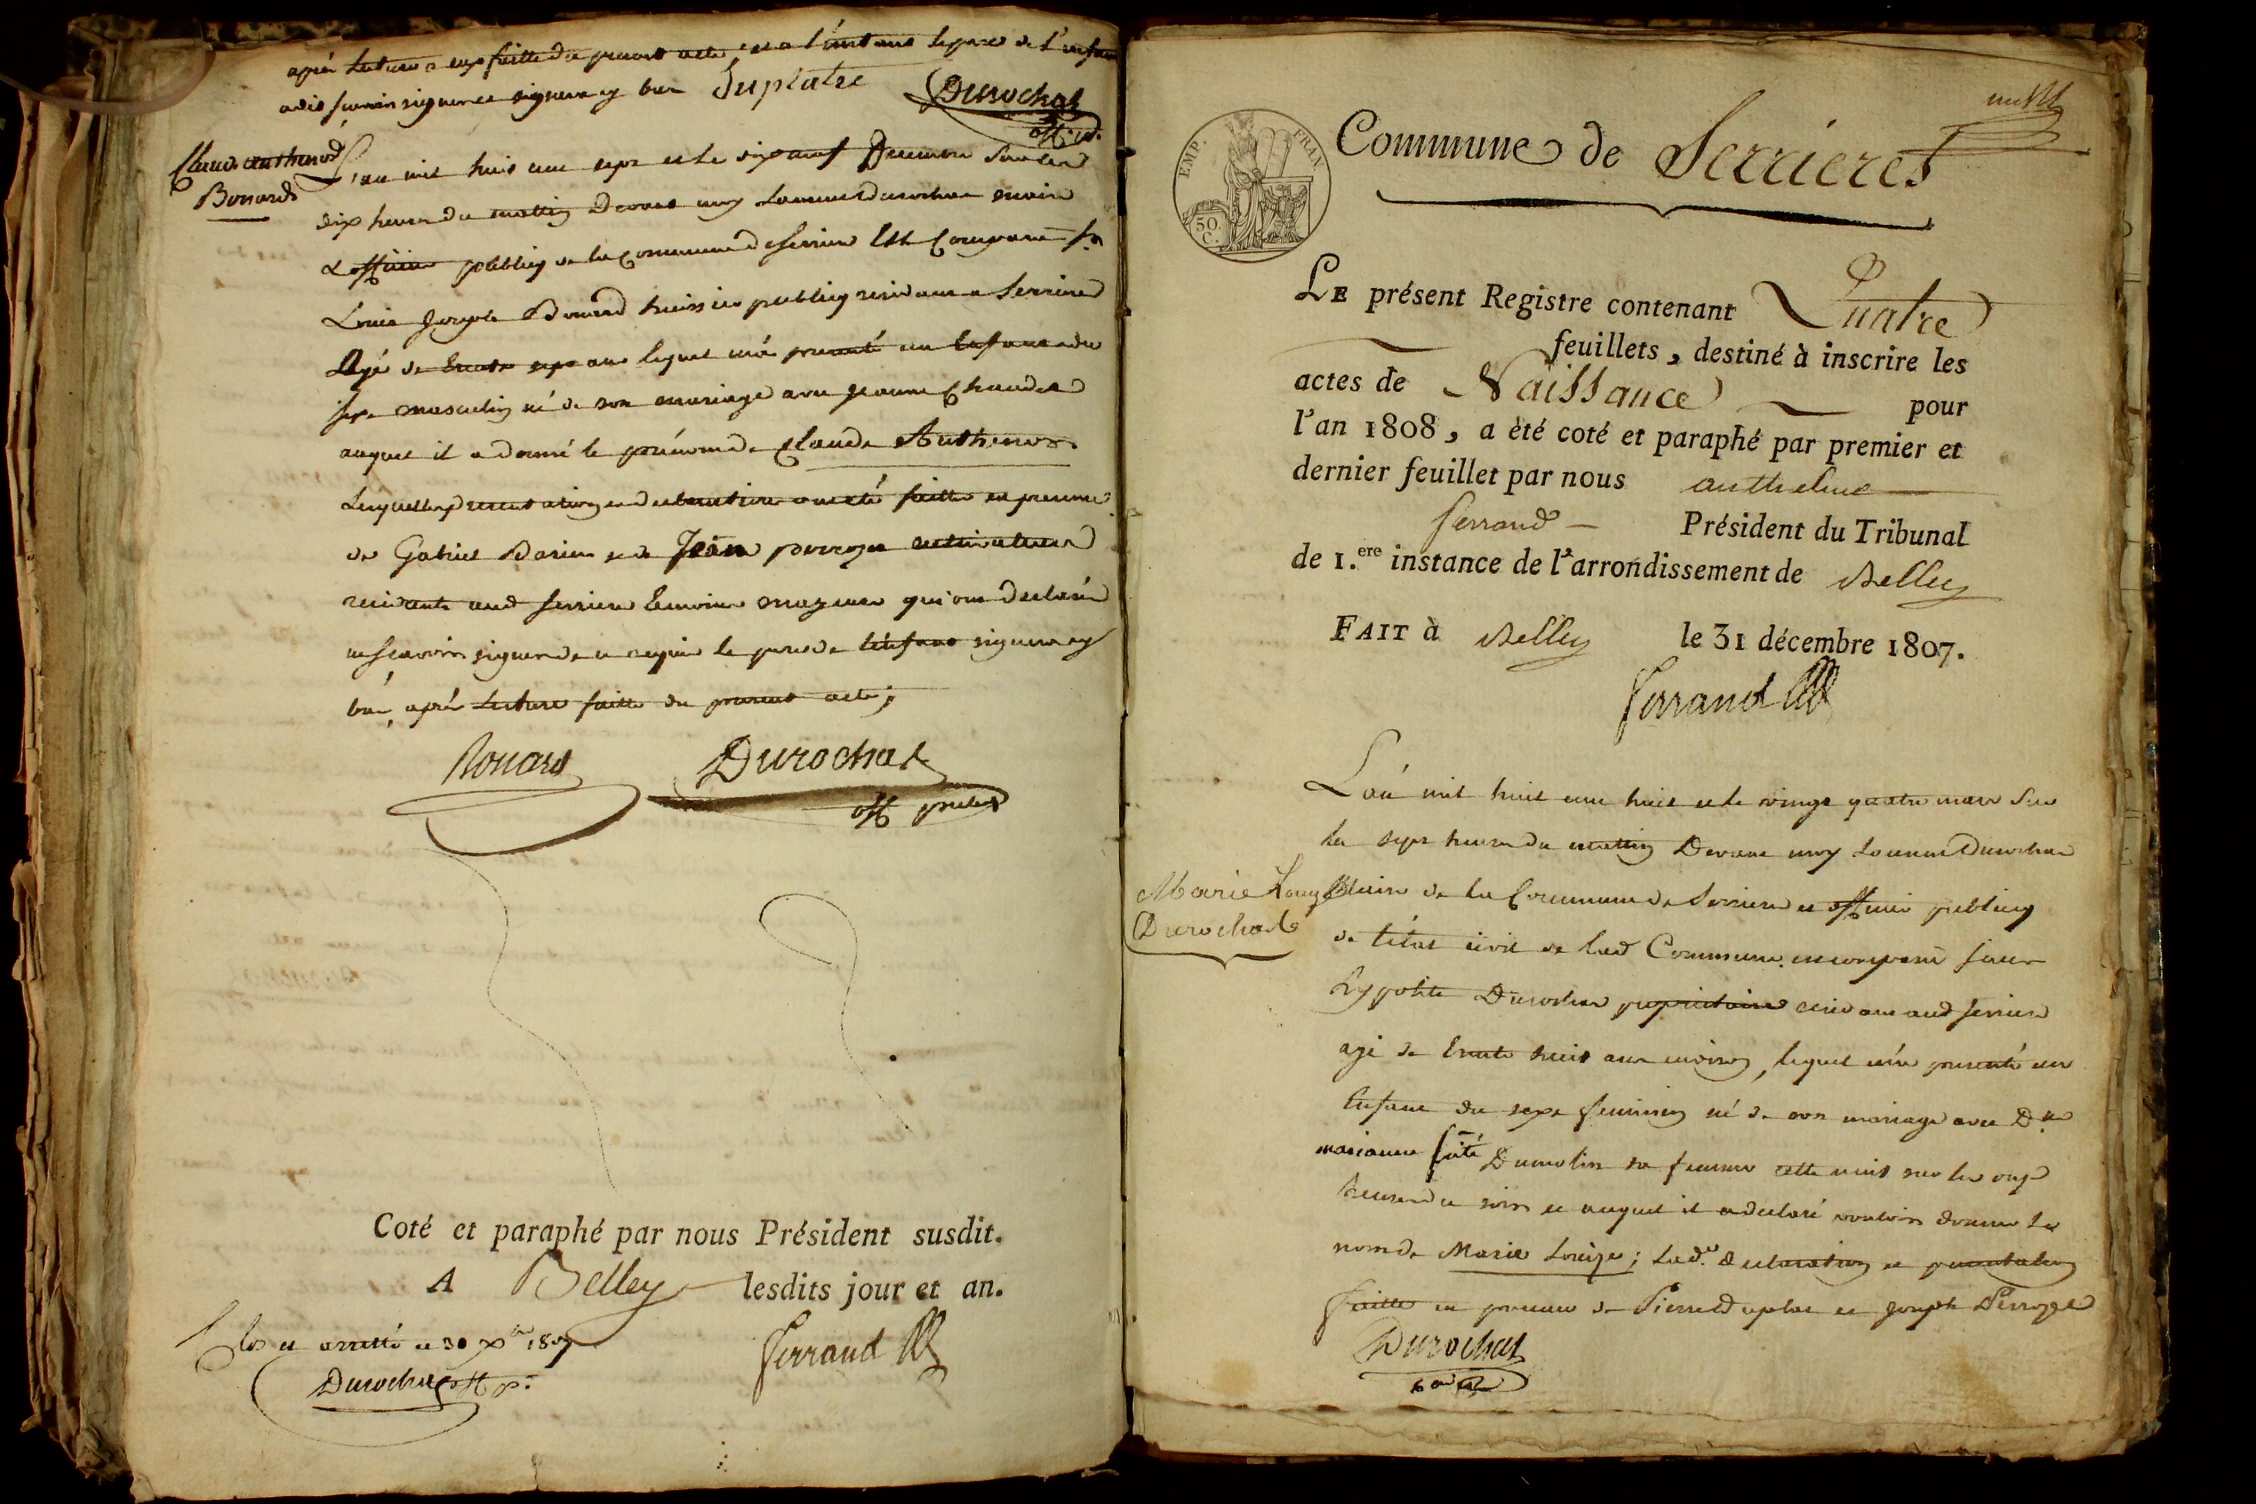 après lecture a eux faitte du present acte, et a l'instant le pere de l'enfant
a dit scavoir signer et signera cy bas Duplatre
Durochat
off. p.
Claude anthenod
Bonard
L'an mil huit cent sept et le dix neuf Decembre sur les
dix heures du matin Devant moy Durochat maire
& officier publicq de la Commune de Serriere Est Comparu Sr
Louis Joseph Bonard huissier publicq residant a Serriere
Agé de trente sept ans lequel m'a presenté un Enfant du
sexe masculin né de son mariage avec jeanne Chaudet
auquel il a donné le prénom de Claude Anthenod
Lesquelles presentation et declaration ont été faitte en presence
de Gabriel et de Jean perrozet cultivateurs
residants aud Serriere temoins majeurs qui ont declaré
ne scavoir signer de ce requis le pere de l'enfant signera cy
bas, après Lecture faitte du present acte;
Bonard Durochat
off public
Coté et paraphé par nous Président susdit.
A Belley lesdits jour et an.
Clos et arretté ce 30 Xbre 1807 Ferrand
Durochat off p.
EMP. FRAN.
50. C.
Commune de Serrieres
LE présent Registre contenant Quatre
feuillets, destiné à inscrire les
actes de Naissance pour
l'an 1808, a été coté et paraphé par premier et
dernier feuillet par nous anthelme
ferrand Président du Tribunal
de 1.ere instance de l'arrondissement de Belley
FAIT à Belley le 31 décembre 1807.
Ferrand
L'an mil huit cent huit et le vingt quatre mars sur
les sept heures du matin Devant moy Durochat
Marie Louyse
Durochat
Maire de la Commune de Serriere et officier publicq
de l'état civil de lad Commune est comparu sieur
hypolite Durochat proprietaire residant aud Serriere
agé de trente huit ans environ, lequel m'a presenté un
Enfant du sexe feminin né de son mariage avec De
marianne Dumolin sa femme cette nuit sur les onze
heures du soir et auquel il a declaré vouloir donner les
nom de Marie Louize; Lad. declaration et presentation
faitte en presence de Pierre Duplatre et joseph Perrozet
Durochat